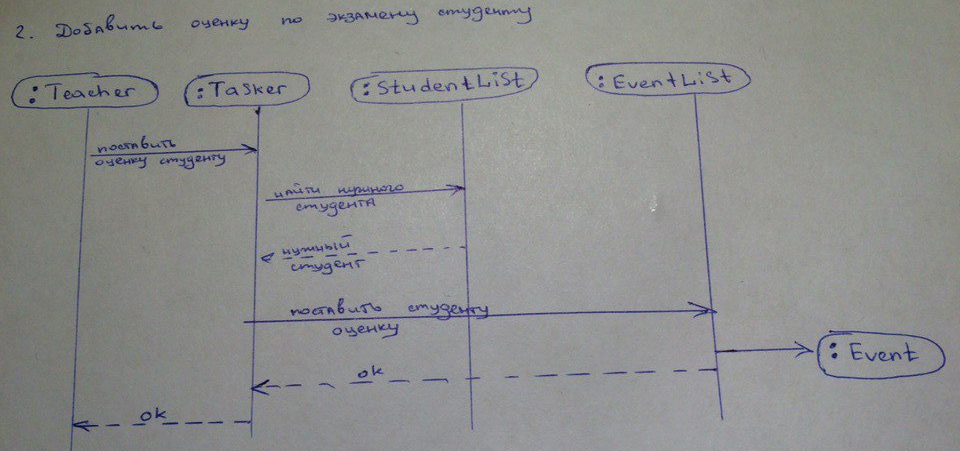 2. Добавить оценку по экзамену студенту
:Teacher :Tasker :StudentList :EventList
поставить
оценку студенту
найти нужного
студента
нужный
студент
поставить студенту
оценку
:Event
ok
ok